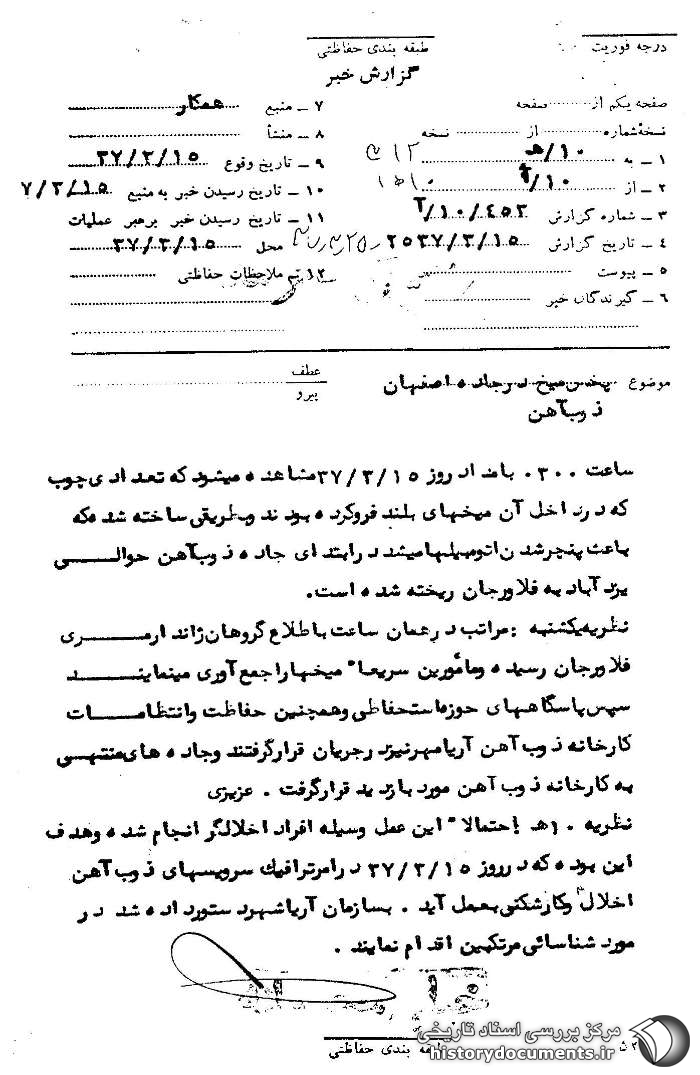 درجه فوریت
طبقه بندی حفاظتی
گزارش خبر
صفحه یکم از ........ صفحه
نسخه شماره ........ از ........ نسخه
۱ ـ به ۱۰/هـ ۳۱۲
۲ ـ از ۱۰/
۳ ـ شماره گزارش ۱۰/۴۵۲/
۴ ـ تاریخ گزارش ۲۵۳۷/۳/۱۵
۵ ـ پیوست
۶ ـ گیرندگان خبر
۷ ـ منبع همکار
۸ ـ منشأ
۹ ـ تاریخ وقوع ۳۷/۳/۱۵
۱۰ ـ تاریخ رسیدن خبر به منبع ۷/۳/۱۵
۱۱ ـ تاریخ رسیدن خبر برهبر عملیات
محل ۳۷/۳/۱۵
۱۲ ـ ملاحظات حفاظتی
موضوع پخش میخ در جاده اصفهان
ذوب آهن
عطف
پیرو
ساعت ۰۳۰۰ بامداد روز ۳۷/۳/۱۵ مشاهده میشود که تعدادی چوب
که در داخل آن میخهای بلند فروکرده بودند و بطریقی ساخته شده که
باعث پنچر شدن اتومبیلها میشد در ابتدای جاده ذوب آهن حوالی
یزدآباد به فلاورجان ریخته شده است.
نظریه یکشنبه : مراتب در همان ساعت باطلاع گروهان ژاندارمری
فلاورجان رسیده و مأمورین سریعا" میخها را جمع آوری مینمایند
سپس پاسگاههای حوزه استحفاظی و همچنین حفاظت و انتظامات
کارخانه ذوب آهن آریامهر نیز در جریان قرار گرفتند و جاده های منتهی
به کارخانه ذوب آهن مورد بازدید قرار گرفت . عزیزی
نظریه ۱۰هـ احتمالا" این عمل وسیله افراد اخلالگر انجام شده و هدف
این بوده که در روز ۳۷/۳/۱۵ در امر ترافیک سرویسهای ذوب آهن
اخلال و کارشکنی بعمل آید . بسازمان آریاشهر دستور داده شد در
مورد شناسائی مرتکبین اقدام نمایند .
طبقه بندی حفاظتی
مرکز بررسی اسناد تاریخی
historydocuments.ir